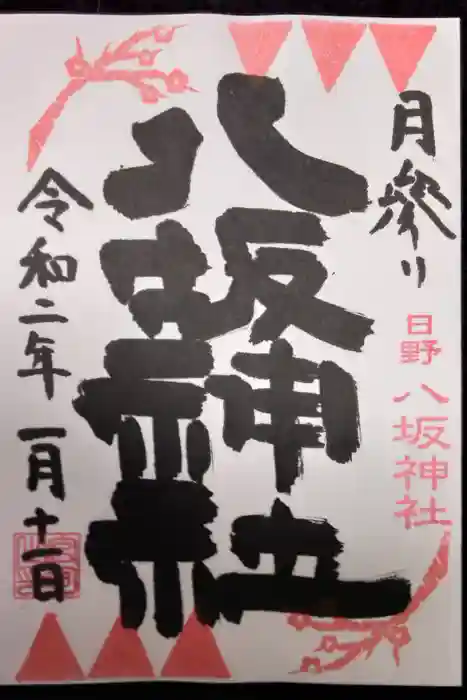 月参り
日野
八坂神社
八坂神社
令和二年 一月十一日